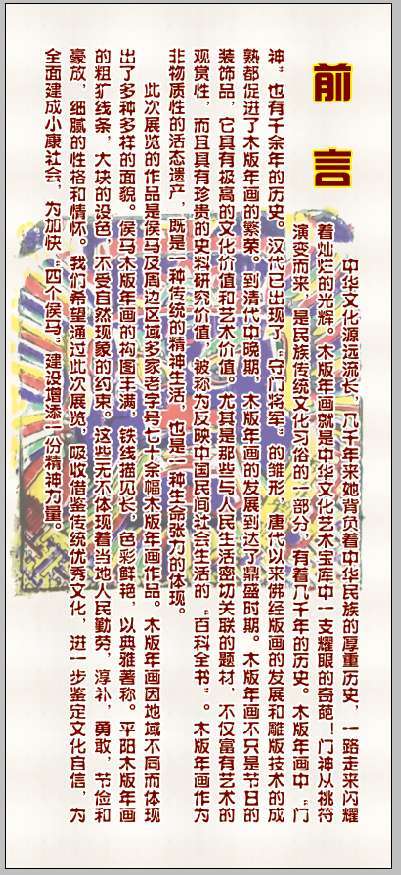 前言
中华文化源远流长，几千年来她背负着中华民族的厚重历史，一路走来闪耀
着灿烂的光辉。木版年画就是中华文化艺术宝库中一支耀眼的奇葩！门神从桃符
演变而来，是民族传统文化习俗的一部分，有着几千年的历史。木版年画中“门
神”也有千余年的历史。汉代已出现了“守门将军”的雏形，唐代以来佛经版画的发展和雕版技术的成
熟都促进了木版年画的繁荣。到清代中晚期，木版年画的发展到达了鼎盛时期。木版年画不只是节日的
装饰品，它具有极高的文化价值和艺术价值。尤其是那些与人民生活密切关联的题材，不仅富有艺术的
观赏性，而且具有珍贵的史料研究价值，被称为反映中国民间社会生活的“百科全书”。木版年画作为
非物质性的活态遗产，既是一种传统的精神生活，也是一种生命张力的体现。
此次展览的作品是侯马及周边区域多家老字号七十余幅木版年画作品。木版年画因地域不同而体现
出了多种多样的面貌。侯马木版年画的构图丰满，铁线描见长，色彩鲜艳，以典雅著称。平阳木版年画
的粗犷线条，大块的设色，不受自然现象的约束。这些无不体现着当地人民勤劳，淳朴，勇敢，节俭和
豪放，细腻的性格和情怀。我们希望通过此次展览，吸收借鉴传统优秀文化，进一步鉴定文化自信，为
全面建成小康社会，为加快“四个侯马”建设增添一份精神力量。